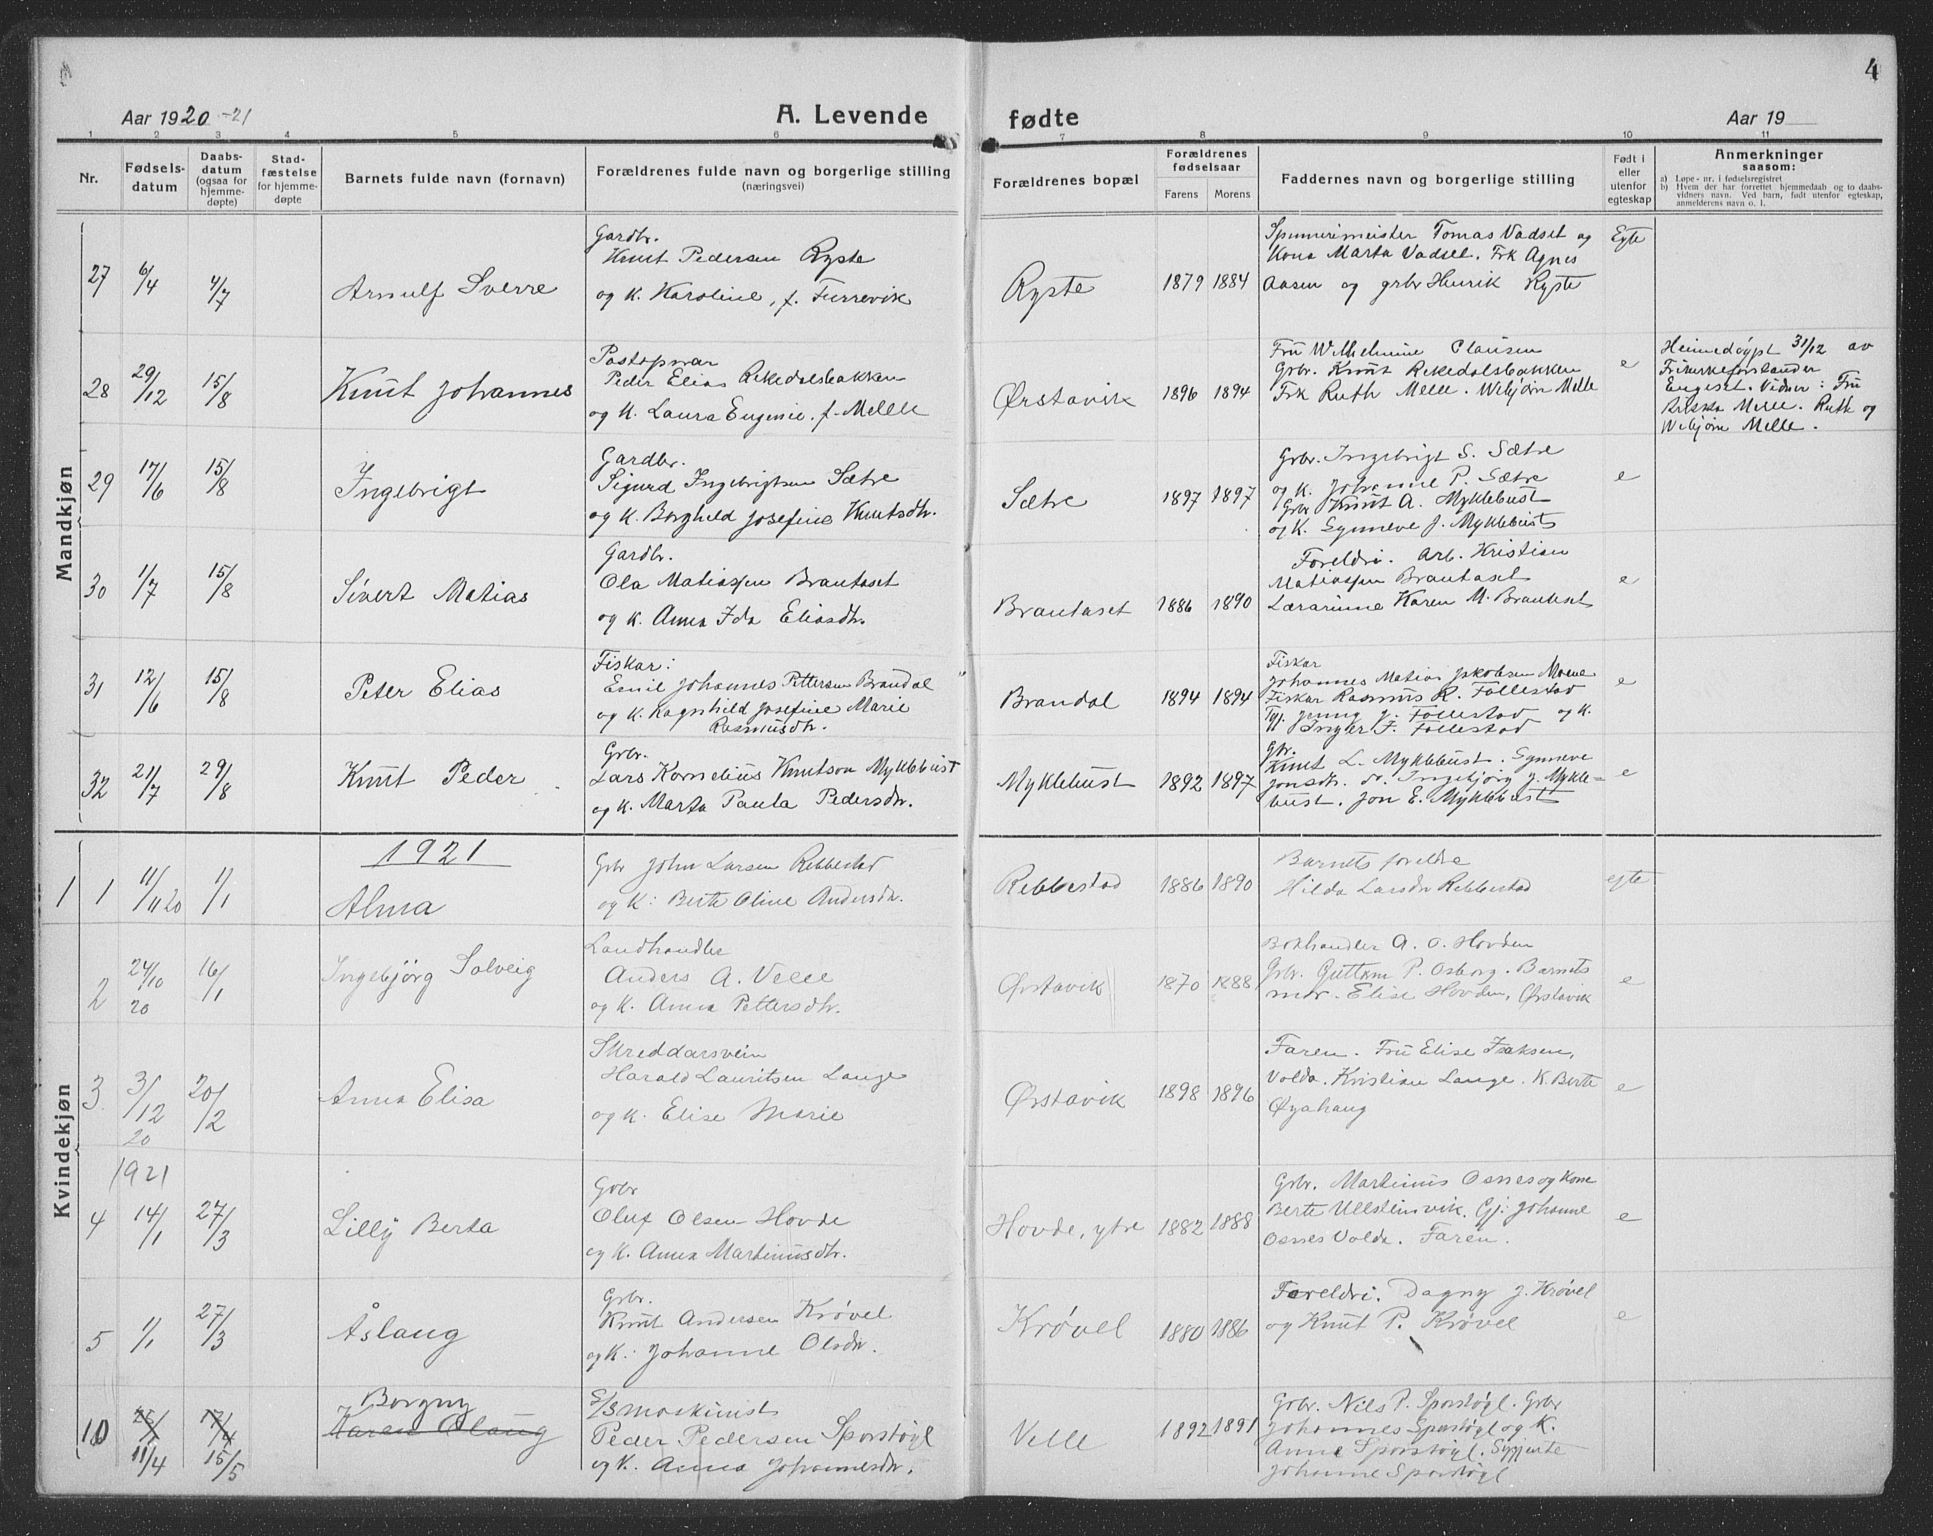 4
Aar 1920-21
A. Levende
fødte
Aar 19
1 2 3 4 5 6 7 8 9 10 11
Nr.
Fødsels-
datum
Daabs-
datum
(ogsaa for
hjemme-
døpte)
Stad-
fæstelse
for hjemme-
døpte
Barnets fulde navn (fornavn)
Forældrenes fulde navn og borgerlige stilling
(næringsvei)
Forældrenes bopæl
Forældrenes
fødselsaar
Farens
Morens
Faddernes navn og borgerlige stilling
Født i
eller
utenfor
egteskap
Anmerkninger
saasom:
a) Løpe-nr. i fødselsregistret
b) Hvem der har forrettet hjemmedaab og to daabs-
vidners navn. Ved barn, født utenfor egteskap,
anmelderens navn o. l.
Mandkjøn
27
6/4
4/7
Arnulf Sverre
Gardbr.
Knut Pedersen Ryste
og k. Karoline, f. Furrevik
Ryste
1879 1884
Spinnerimeister Tomas Vadset og
Kona Marta Vadset. Frk Agnes
Aasen og grbr Henrik Ryste
Egte
28
29/12
15/8
Knut Johannes
Postopnar
Peder Elias Rekedalsbakken
og k. Laura Eugenie, f. Melle
Ørstavik
1896 1894
Fru Wilhelmine Clausen
Grbr. Knut Rekedalsbakken
Frk Ruth Melle. Webjørn Melle
e
Heimedøypt 31/12 av
Frikirkeforstander
Engeset. Vidner: Fru
Melle. Ruth og
Webjørn Melle.
29
17/6
15/8
Ingebrigt
Gardbr.
Sigurd Ingebrigtsen Sætre
og k. Borghild Josefine Knutsdtr.
Sætre
1897 1897
Grbr. Ingebrigt S. Sætre
og k. Johanne P. Sætre
Grbr Knut A. Myklebust
og k. Synneve J. Myklebust
e
30
1/7
15/8
Sivert Matias
Gardbr.
Ola Matiassen Brautaset
og k. Anna Ida Eliasdtr.
Brautaset
1886 1890
Foreldri. Arb. Kristian
Matiassen Brautaset
Lærarinne Karen M. Brautaset
e
31
12/6
15/8
Peter Elias
Fiskar:
Emil Johannes Pettersen Brandal
og k. Ragnhild Josefine Marie
Rasmusdtr.
Brandal
1894 1894
Fiskar
Johannes Matias Jakobsen Moene
Fiskar Rasmus R. Follestad
Jenny J. Follestad og k.
Inger F. Follestad
e
32
21/7
29/8
Knut Peder
Grbr.
Lars Kornelius Knutson Myklebust
og k. Marta Paula Pedersdtr.
Myklebust
1892 1897
Gbr.
Knut L. Myklebust. Synneve
Jonsdtr. do. Ingebjørg J. Mykle-
bust. Jon E. Myklebust
e
Kvindekjøn
1921
1 1
11/11 20
1/1
Alma
Grbr John Larsen Rebbestad
og k: Berte Oline Andersdtr.
Rebbestad
1886 1890
Barnets foreldre
Hilda Larsdtr Rebbestad
egte
2
24/10
20
16/1
Ingebjörg Solveig
Landhandler
Anders A. Velle
og k. Anna Pettersdtr.
Ørstavik
1870 1888
Bokhandler A. O. Hovden
Grbr. Guttorm P. Osborg. Barnets
mor. Elise Hovden, Ørstavik
e
3
3/12
20
20/2
Anna Elisa
Skreddarsvein
Harald Lauritsen Lange
og k. Elise Marie
Ørstavik
1898 1896
Faren. Fru Elise Isaksen,
Volda. Kristian Lange. K. Berte
Øyahaug
e
1921
4
14/1
27/3
Lilly Berta
Grbr
Oluf Olsen Hovde
og k. Anna Martinusdtr.
Hovde, ytre
1882 1888
Grbr. Martinus Osnes og kone
Berte Ullsteinsvik. Gj: Johanne
Osnes Volda. Faren.
e
5
1/1
27/3
Åslaug
Grbr.
Knut Andersen Krøvel
og k: Johanne Olsdtr.
Krøvel
1880 1886
Foreldri. Dagny J. Krøvel
og Knut P. Krøvel
e
10
11/4
17/4
15/5
Borgny
Karen Olaug
E/S maskinist
Peder Pedersen Sporstøyl
og k. Anna Johannesdtr.
Velle
1892 1891
Grbr. Nils P. Sporstøyl. Grbr
Johannes Sporstøyl og K.
Anne Sporstøyl.
Johanne Sporstøyl